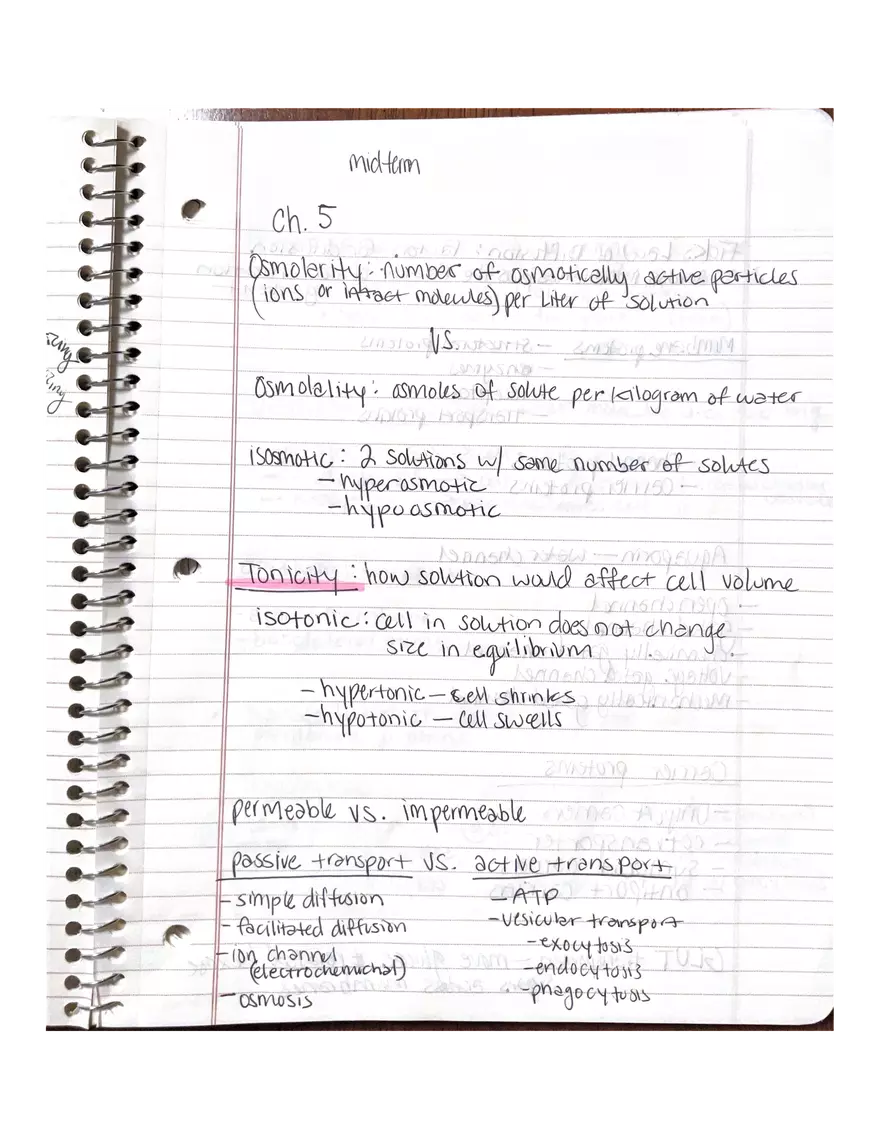 midterm
Ch. 5
Osmolarity: number of osmotically active particles
(ions or intact molecules) per Liter of solution
VS.
Osmolality: osmoles of solute per kilogram of water
isosmotic: 2 solutions w/ same number of solutes
- hyperosmotic
- hypoosmotic
Tonicity: how solution would affect cell volume
isotonic: cell in solution does not change
size in equilibrium
- hypertonic - cell shrinks
- hypotonic - cell swells
permeable vs. impermeable
passive transport vs. active transport
- simple diffusion - ATP
- facilitated diffusion - vesicular transport
- ion channel - exocytosis
(electrochemichal) - endocytosis
- osmosis - phagocytosis